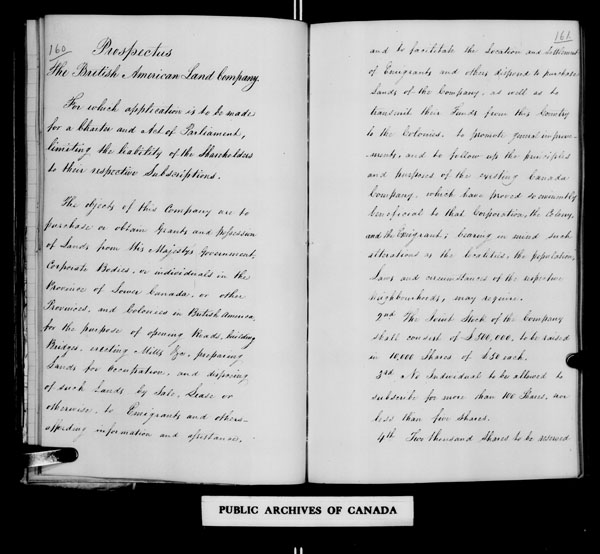 160
Prospectus
The British American Land Company.
For which application is to be made
for a Charter and Act of Parliament,
limiting the liability of the Shareholders
to their respective Subscriptions.
The objects of this Company are to
purchase or obtain Grants and possession
of Lands from His Majesty's Government,
Corporate Bodies, or individuals in the
Province of Lower Canada, or other
Provinces, and Colonies in British America,
for the purpose of opening Roads, building
Bridges, erecting Mills &ca, preparing
Lands for occupation, and disposing
of such Lands, by Sale, Lease or
otherwise, to Emigrants and others –
affording information and assistance,
161
and to facilitate the Location and Settlement
of Emigrants and others disposed to purchase
Lands of the Company, as well as to
transmit their Funds from this Country
to the Colonies, to promote general improve-
-ments, and to follow up the principles
and purposes of the existing Canada
Company, which have proved so eminently
beneficial to that Corporation, the Colony,
and the Emigrant; bearing in mind such
alterations as the localities, the population,
Laws and circumstances of the respective
neighbourhoods, may require.
2nd The Joint Stock of the Company
shall consist of £500,000, to be raised
in 10,000 Shares of £50 each.
3rd No Individual to be allowed to
subscribe for more than 100 Shares, nor
less than five Shares.
4th Two thousand Shares to be reserved
PUBLIC ARCHIVES OF CANADA